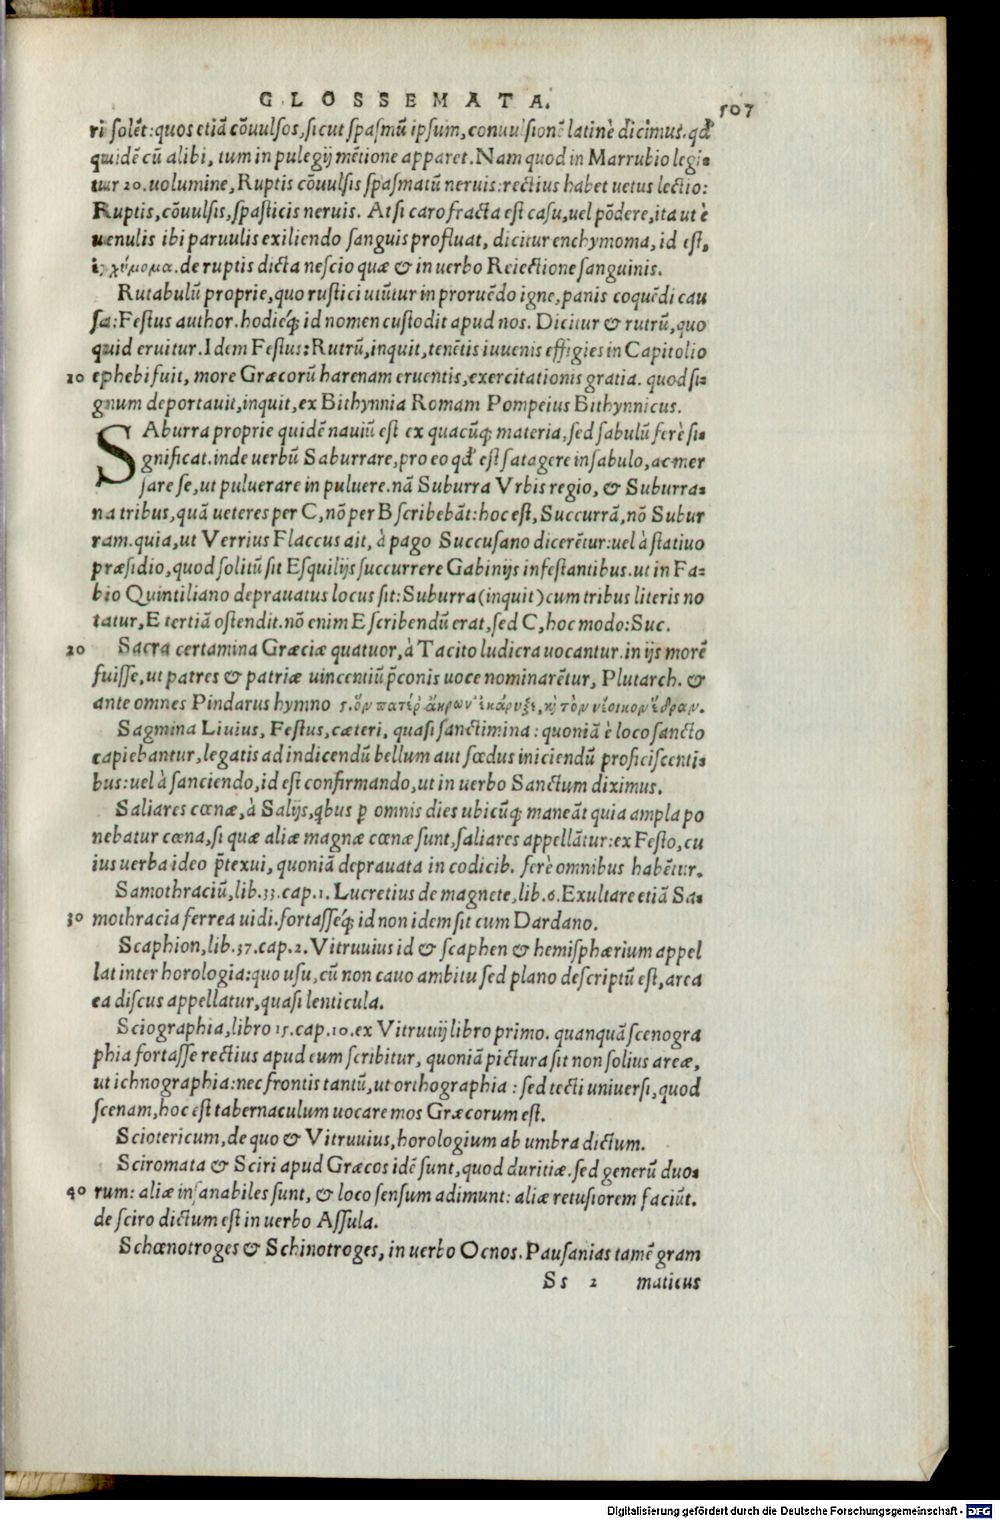 GLOSSEMATA. 507
ri solēt: quos etiā cōuulsos, sicut spasmū ipsum, conuulsionē latinè dicimus. qđ
quidē cū alibi, tum in pulegij mētione apparet. Nam quod in Marrubio legi-
tur 20. uolumine, Ruptis cōuulsis spasmatū neruis: rectius habet uetus lectio:
Ruptis, cōuulsis, spasticis neruis. At si caro fracta est casu, uel pōdere, ita ut è
uenulis ibi paruulis exiliendo sanguis profluat, dicitur enchymoma, id est,
ἐγχύμομα. de ruptis dicta nescio quæ & in uerbo Reiectione sanguinis.
Rutabulū proprie, quo rustici utūtur in proruēdo igne, panis coquēdi cau
sa: Festus author. hodieq́; id nomen custodit apud nos. Dicitur & rutrū, quo
quid eruitur. Idem Festus: Rutrū, inquit, tenētis iuuenis effigies in Capitolio
10 ephebi fuit, more Græcorū harenam eruentis, exercitationis gratia. quod si-
gnum deportauit, inquit, ex Bithynnia Romam Pompeius Bithynnicus.
SAburra proprie quidē nauiū est ex quacūq; materia, sed sabulū ferè si-
gnificat. inde uerbū Saburrare, pro eo qđ est satagere in sabulo, ac mer
sare se, ut puluerare in puluere. nā Suburra Vrbis regio, & Suburra-
na tribus, quā ueteres per C, nō per B scribebāt: hoc est, Succurrā, nō Subur
ram. quia, ut Verrius Flaccus ait, à pago Succusano dicerētur: uel à statiuo
præsidio, quod solitū sit Esquilijs succurrere Gabinijs infestantibus. ut in Fa-
bio Quintiliano deprauatus locus sit: Suburra (inquit) cum tribus literis no
tatur, E tertiā ostendit. nō enim E scribendū erat, sed C, hoc modo: Suc.
20 Sacra certamina Græciæ quatuor, à Tacito ludicra uocantur. in ijs morē
fuisse, ut patres & patriæ uincentiū p̄conis uoce nominarētur, Plutarch. &
ante omnes Pindarus hymno 5. ὃν πατέρ ἄκρων ἐκάρυξε, κỳ τὸν νέοικον ἕδραν.
Sagmina Liuius, Festus, cæteri, quasi sanctimina: quoniā è loco sancto
capiebantur, legatis ad indicendū bellum aut fœdus iniciendū proficiscenti-
bus: uel à sanciendo, id est confirmando, ut in uerbo Sanctum diximus.
Saliares cœnæ, à Salijs, q̄bus ꝑ omnis dies ubicūq; maneāt quia ampla po
nebatur cœna, si quæ aliæ magnæ cœnæ sunt, saliares appellātur: ex Festo, cu
ius uerba ideo p̄texui, quoniā deprauata in codicib. ferè omnibus habētur.
Samothraciū, lib. 33. cap. 1. Lucretius de magnete, lib. 6. Exultare etiā Sa-
30 mothracia ferrea uidi. fortasseq́; id non idem sit cum Dardano.
Scaphion, lib. 37. cap. 2. Vitruuius id & scaphen & hemisphærium appel
lat inter horologia: quo usu, cū non cauo ambitu sed plano descriptū est, area
ea discus appellatur, quasi lenticula.
Sciographia, libro 15. cap. 10. ex Vitruuij libro primo. quanquā scenogra
phia fortasse rectius apud eum scribitur, quoniā pictura sit non solius areæ,
ut ichnographia: nec frontis tantū, ut orthographia: sed tecti uniuersi, quod
scenam, hoc est tabernaculum uocare mos Græcorum est.
Sciotericum, de quo & Vitruuius, horologium ab umbra dictum.
Sciromata & Sciri apud Græcos idē sunt, quod duritiæ. sed generū duo-
40 rum: aliæ insanabiles sunt, & loco sensum adimunt: aliæ retusiorem faciūt.
de sciro dictum est in uerbo Assula.
Schœnotroges & Schinotroges, in uerbo Ocnos. Pausanias tamē gram
Ss 2 maticus
Digitalisierung gefördert durch die Deutsche Forschungsgemeinschaft - DFG